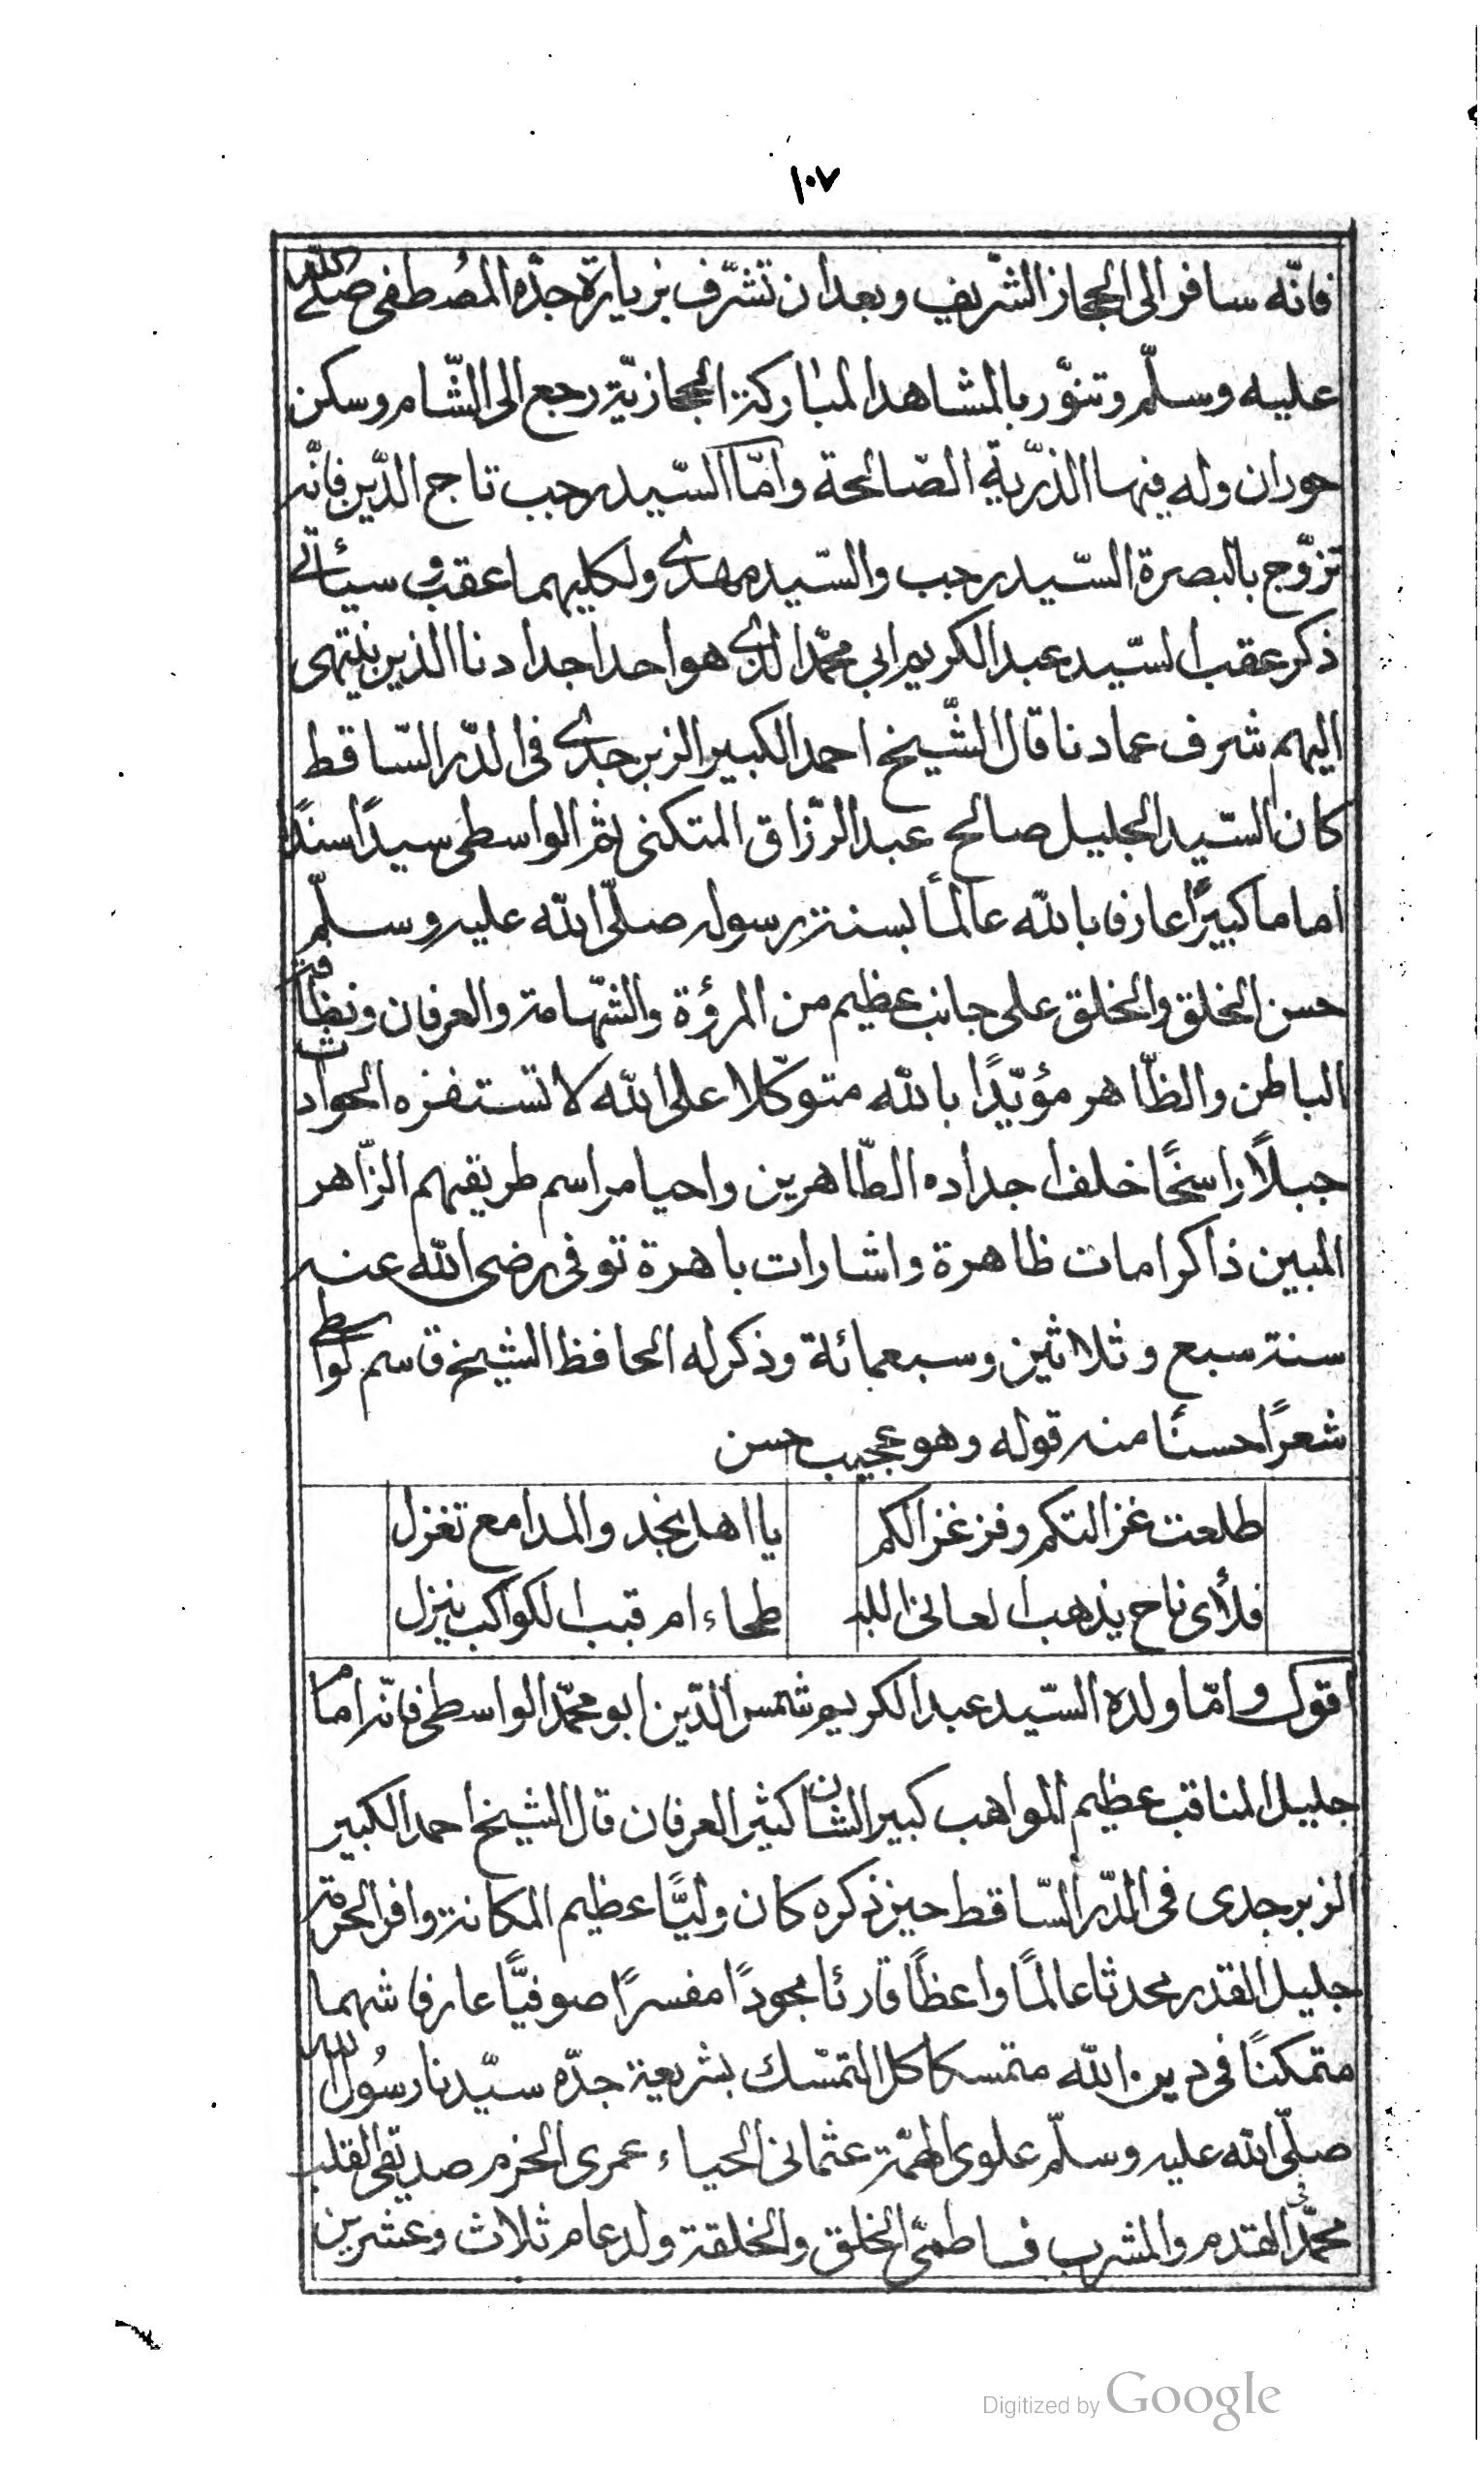 ١٠٧
فانّه سافر الى الحجاز الشّريف وبعد ان تشرّف بزيارة جدّه المُصطفى صلّى الله
عليه وسلّم وتنوّر بالمشاهد المباركة الحجازيّة رجع الى الشّام وسكن
حوران وله فيها الذرّية الصّالحة وامّا السّيد رجب تاج الدّين فانّه
تزوّج بالبصرة السّيد رجب والسّيد مهدى ولكليهما عقب وسيأتى
ذكر عقب السّيد عبد الكريم ابى محمّد الذى هو احد اجدادنا الذين ينتهى
اليهم شرف عمادنا قال الشّيخ احمد الكبير الزبرجدى فى الدّر السّاقط
كان السّيد الجليل صالح عبد الرّزاق المتكنى ثم الواسطى سيدًا سندًا
اماما كبيرًا عارفا بالله عالمًا بسنة رسوله صلّى الله عليه وسلّم
حسن الخلق والخلق على جانب عظيم من المرؤة والشّهامة والعرفان ونظافة
الباطن والظّاهر مؤيّدًا بالله متوكّلا على الله لا تستفزه الحوادث
جبلًا راسخًا خلف اجداده الطّاهرين واحيا مراسم طريقهم الزّاهر
المبين ذا كرامات ظاهرة واشارات باهرة توفى رضى الله عنه
سنة سبع وثلاثين وسبعمائة وذكر له الحافظ الشيخ قاسم الواسطى
شعرًا حسنًا منه قوله وهو عجيب حسن
طلعت غزالتكم وفز غزالكم يا اهل نجد والمدامع تغزل
فلأى ناح يذهب العانى البـ طحاء ام قبب الكواكب ينزل
اقول وامّا ولده السّيد عبد الكريم شمس الدّين ابو محمّد الواسطى فانّه امام
جليل المناقب عظيم المواهب كبير الشان كثير العرفان قال الشيخ احمد الكبير
الزبرجدى فى الدّر السّاقط حين ذكره كان وليًّا عظيم المكانة وافر الحرمة
جليل القدر محدثا عالمًا واعظًا قارئا مجودًا مفسرًا صوفيًّا عارفا شهما
متمكنًا فى دين الله متمسكا كل التمسّك بشريعة جدّه سيّدنا رسُول الله
صلّى الله عليه وسلّم علوى الهمّة عثمانى الحياء عمرى الحزم صديقى القلب
محمّدى القدم والمشرب فاطمىّ الخلق والخلقة ولد عام ثلاث وعشرين
Digitized by Google